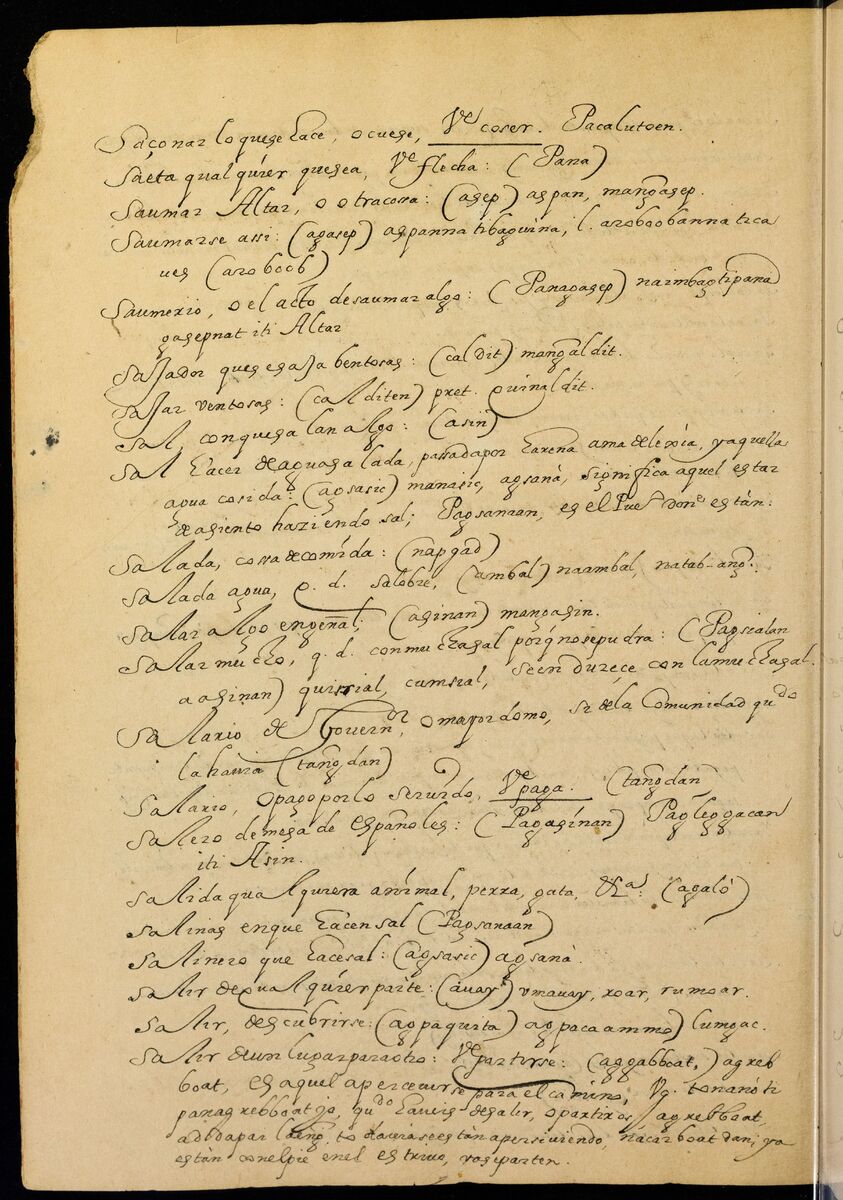 Saçonar lo que se hace, o cuese, Ve coser. Pacalutoen.
Saeta qualquier que sea, Ve flecha: (Pana)
Saumar Altar, o otra cossa: (asep) aspan, mangasep.
Saumarse assi: (agasep) aspanna ti baguina, l. aroboobanna tica
ues (aroboob)
Saumerio, o el acto de saumar algo: (Panagasep) naimbag ti pana
gasepnat iti Altar
Sajador que saja bentosas: (caldit) mangaldit.
Sajar ventosas: (calditen) pret. quinaldit.
Sal, con que salan algo: (asin)
Sal hacer de agua salada, passada por harena a ma de lexia, y aquella
agua cosida: (agsasic) manasic, agsanà, significa aquel estar
de asiento haziendo sal; Pagsanaan, es el Puesto done están:
Salada, cossa de comida: (napgad)
Salada agua, q. d. salobre, (ambal) naambal, natab-ang.
Salar algo en genal, (asinan) mangasin.
Salar mucho, q. d. con mucha sal porq no se pudra: (Pagsialan
a asinan) quissial, cumsial, se endureçe con la mucha sal.
Salario de Governor, o mayordomo, si de la Comunidad qudo
la havia (tangdan)
Salario, o pago por lo servido, Ve paga. (tangdan
Salero de mesa de españoles: (Pagasinan) Pagleggacan
iti Asin.
Salida qualquiera animal, perra, gata, &a: (agaló)
Salinas en que hacen sal (Pagsanaan)
Salinero que hace sal: (agsasic) agsanà.
Salir de qualquier parte: (auay) umauay, roar, rumoar.
Salir, descubrirse: (agpaquita) agpacaammo) lumgac.
Salir de un lugar para otro: Ve partirse: (aggabboat,) agreb
boat, es aquel apercevirse para el camino, Vg. tonanó ti
panagrebboat jo, qudo haveis de salir, o partiros, agrebboat,
todavia se estàn aperciviendo, nacarboàt dan, ya
estàn con el pie en el estrivo, ya se parten.